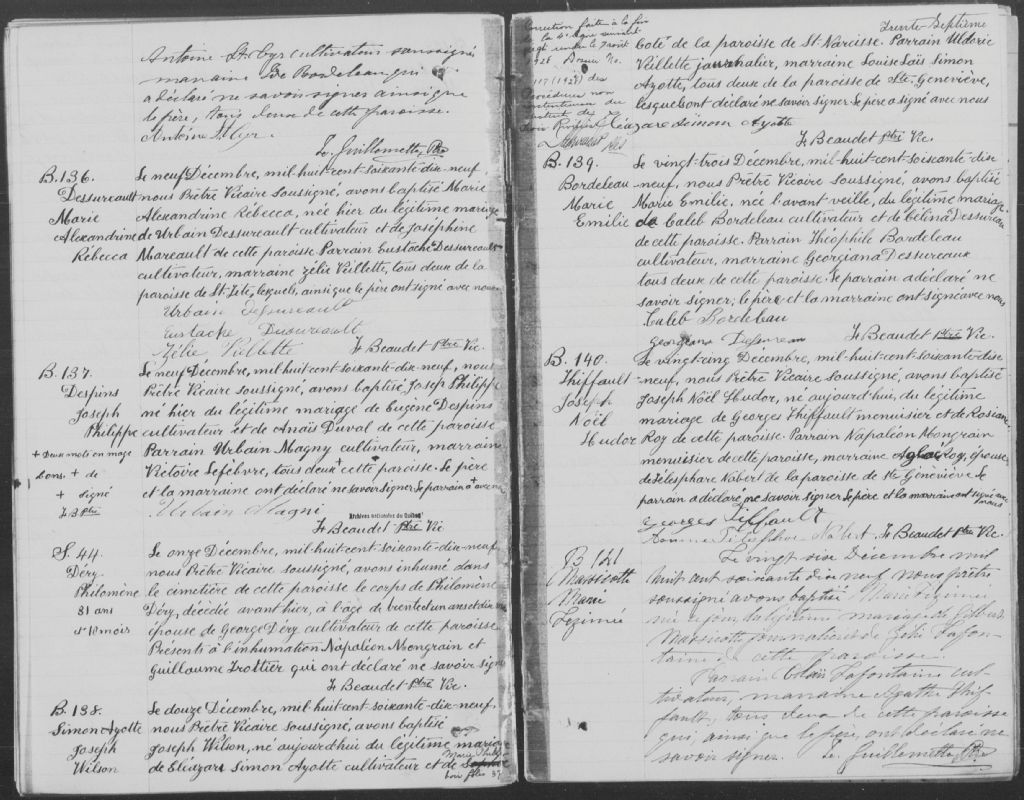 Antoine St. Cyr cultivateur soussigné
marraine De Bordeleau qui
a déclaré ne savoir signer ainsi que
le père, tous deux de cette paroisse.
Antoine St. Cyr.
Le. Guillemette, Ptre
B. 136.
Dessureault
Marie
Alexandrine
Rébecca
Le neuf Décembre, mil-huit-cent-soixante-dix-neuf,
nous Prêtre Vicaire Soussigné, avons baptisé Marie
Alexandrine Rébecca, née hier du légitime mariage
de Urbain Dessureault cultivateur et de Josephine
Mareault de cette paroisse. Parrain Eustache Dessureault
cultivateur, marraine Zélie Veillette, tous deux de la
paroisse de St-Tite, lesquels, ainsi que le père ont signé avec nous
Urbain Desureault
Eustache Dusureault
Zélie Veillette
F. Beaudet Ptre Vic.
B. 137.
Despins
Joseph
Philippe
+ deux mots en marge
bons. + de
+ signé
F. B. Ptre
Le neuf Décembre, mil-huit-cent-soixante-dix-neuf, nous
Prêtre Vicaire soussigné, avons baptisé Josep Philippe
né hier du légitime mariage de Eugène Despins
cultivateur et de Anaïs Duval de cette paroisse
Parrain Urbain Magny cultivateur, marraine
Victoire Lefebvre, tous deux + cette paroisse. Le père
et la marraine ont déclaré ne savoir signer. Le parrain + avec nous
Urbain Magni
Archives nationales du Québec
F. Beaudet Ptre Vic
S. 44.
Déry
Philomène
31 ans
et 10 mois
Le onze Décembre, mil-huit-cent-soixante-dix-neuf,
nous Prêtre Vicaire soussigné, avons inhumé dans
le cimetière de cette paroisse le corps de Philomène
Déry, décédée avant hier, à l'âge de trente et un ans et dix mois
épouse de George Déry cultivateur de cette paroisse
Présents à l'inhumation Napoléon Mongrain et
Guillaume Trottier qui ont déclaré ne savoir signer
F. Beaudet Ptre Vic.
B. 138.
Simon Ayotte
Joseph
Wilson
Le douze Décembre, mil-huit-cent-soixante-dix-neuf,
nous Prêtre Vicaire soussigné, avons baptisé
Joseph Wilson, né aujourd'hui du légitime mariage
de Eléazare Simon Ayotte cultivateur et de
Trente-Septième
Correction faite à la fin
1928
117 (1928) des
Procédures non
Coté de la paroisse de St-Narcisse. Parrain Uldoric
Veillette journalier, marraine Louise Laïs Simon
Ayotte, tous deux de la paroisse de Ste. Geneviève,
lesquels ont déclaré ne savoir signer. Le père a signé avec nous
Eléazare Simon Ayotte
F. Beaudet Ptre Vic.
B. 139.
Bordeleau
Marie
Emilie
Le vingt-trois Décembre, mil-huit-cent-soixante-dix
-neuf, nous Prêtre Vicaire Soussigné, avons baptisé
Marie Emilie, née l'avant veille, du légitime mariage
de Caleb Bordeleau cultivateur et de Célina Dessureau
de cette paroisse. Parrain Théophile Bordeleau
cultivateur, marraine Georgiana Dessureaux
tous deux de cette paroisse. Le parrain a déclaré ne
savoir signer; le père et la marraine ont signé avec nous
Caleb Bordelau
Georgiana Desureau
F. Beaudet Ptre Vic.
B. 140.
Thiffault
Joseph
Nöel
Hudor
Le vingt-cinq Décembre, mil-huit-cent-soixante-dix
-neuf, nous Prêtre Vicaire Soussigné, avons baptisé
Joseph Nöel Hudor, né aujourd'hui, du légitime
mariage de Georges Thiffault menuisier et de Rosianne
Roy de cette paroisse. Parrain Napoléon Mongrain
menuisier de cette paroisse, marraine Aglaé Roy, épouse
de Télesphare Nobert de la paroisse de Ste Géneviève. Le
parrain a déclaré ne savoir signer. Le père et la marraine ont signé avec
nous
Georges Tiffault
F. Beaudet Ptre Vic.
B 141
Massicotte
Marie
Lezimée
Le vingt six Décembre mil
huit cent soixante dix neuf nous prêtre
soussigné avons baptisé Marie Lezimée
née ce jour, du légitime mariage de
Massicotte journalier et de Zoé Lafon-
taine de cette paroisse.
Parrain Lafontaine cul-
tivateur, marraine Agathe Thif-
fault, tous deux de cette paroisse
qui, ainsi que le père, ont déclaré ne
savoir signer. Le. Guillemette, Ptre